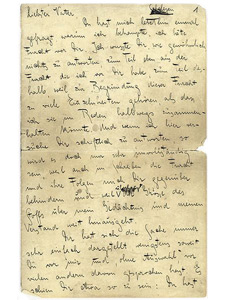 1
Liebster Vater
Du hast mich letzthin einmal
gefragt warum ich behaupte, ich hätte
Furcht vor Dir. Ich wusste Dir, wie gewöhnlich
nichts zu antworten zum Teil eben aus der
Furcht die ich vor Dir habe zum Teil des-
halb weil zur Begründung dieser Furcht
zu viele Einzelheiten gehören als dass
ich sie im Reden halbwegs zusammen-
halten könnte. Und wenn ich hier ver-
suche Dir schriftlich zu antworten so
wird es doch nur sehr unvollständig
sein, weil auch im Schreiben die Furcht
und ihre Folgen mich Dir gegenüber
behindern und weil die Grösse des
Stoffs über mein Gedächtnis und meinen
Verstand weit hinausgeht.
Dir hat sich die Sache immer
sehr einfach dargestellt wenigstens soweit
Du vor mir und, ohne Auswahl, vor
vielen andern davon gesprochen hast. Es
schien Dir etwa so zu sein: Du hast